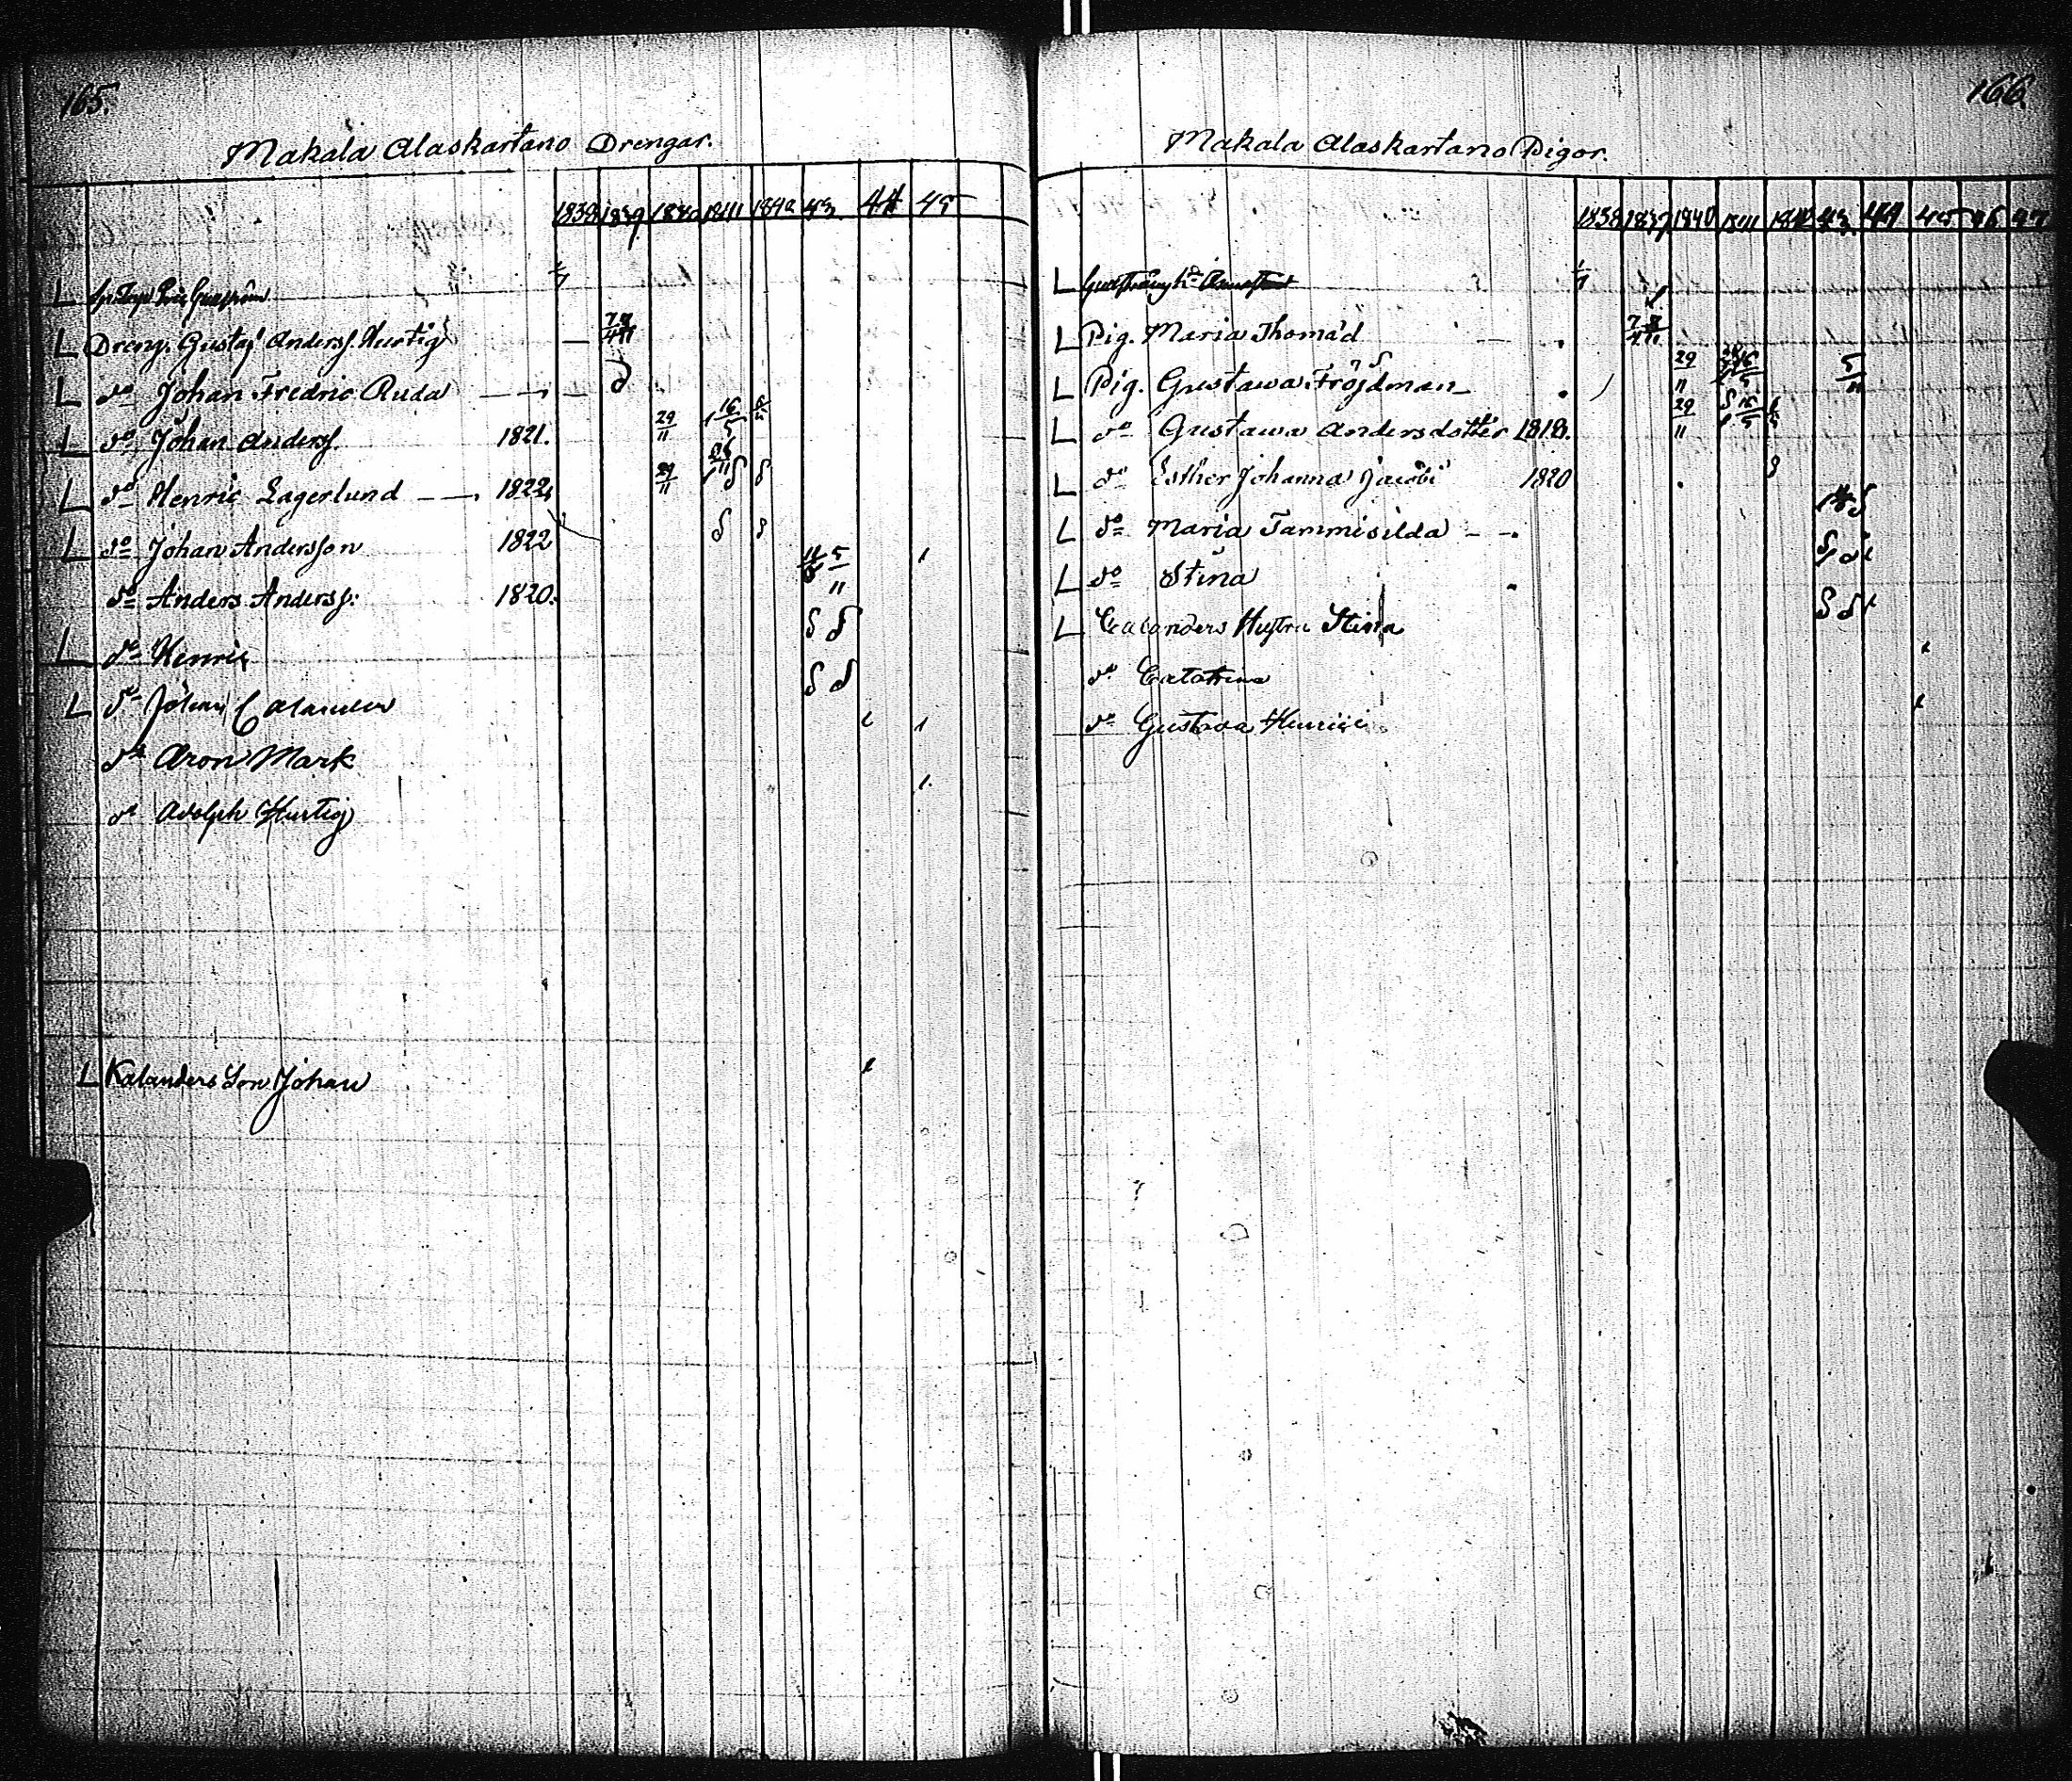 165.
Makala Alaskartano Drengar.
1838 1839 1840 1841 1842 43 44 45
L
L Dreng. Gustaf Anderss. Hurtig
L do Johan Fredric Ruda
L do Johan Anderss. 1821. 29/11 16/5
L do Henric Lagerlund 1822. 29/11
L do Johan Andersson 1822
do Anders Anderss: 1820. 5/11
L do Henric
L do Johan Calander
do Aron Mark
do Adolph Hurtig
L Kalanders Son Johan
166.
Makala Alaskartano Pigor.
1838 1839 1840 1841 1842 43 44 45 46 47
L
L Pig. Maria Thomæd
L Pig. Gustawa Fröjdman 29/11 5/11
L do Gustawa Andersdotter 1818. 29/11
L do Esther Johanna Jacobi 1820
L do Maria Tammisilda
L do Stina
L Calanders Hustru Stina
do Catatrina
do Gustava Henrici